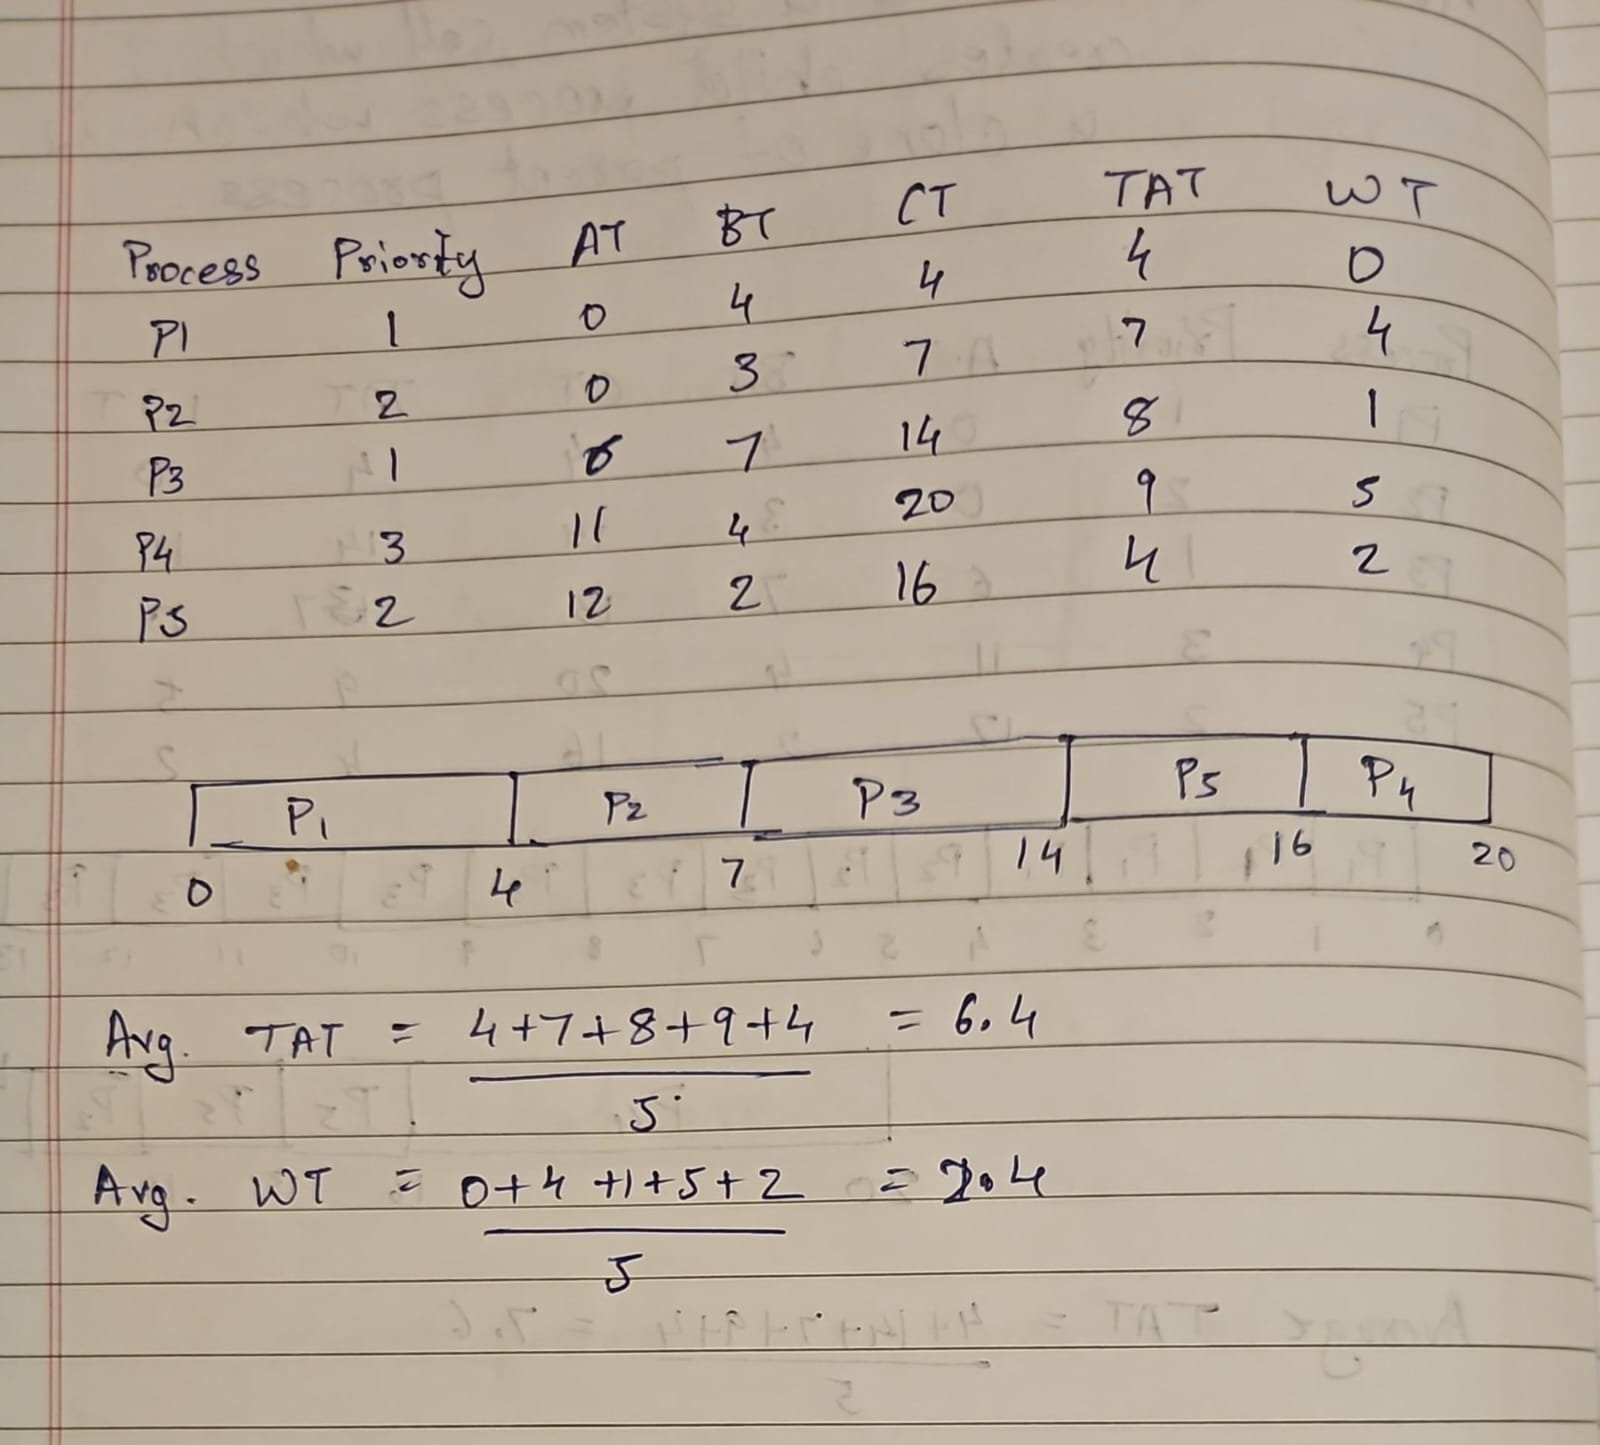 Process Priority AT BT CT TAT WT
P1 1 0 4 4 4 0
P2 2 0 3 7 7 4
P3 1 6 7 14 8 1
P4 3 11 4 20 9 5
P5 2 12 2 16 4 2
P1 P2 P3 P5 P4
0 4 7 14 16 20
Avg. TAT = 4+7+8+9+4 = 6.4
5
Avg. WT = 0+4+1+5+2 = 2.4
5